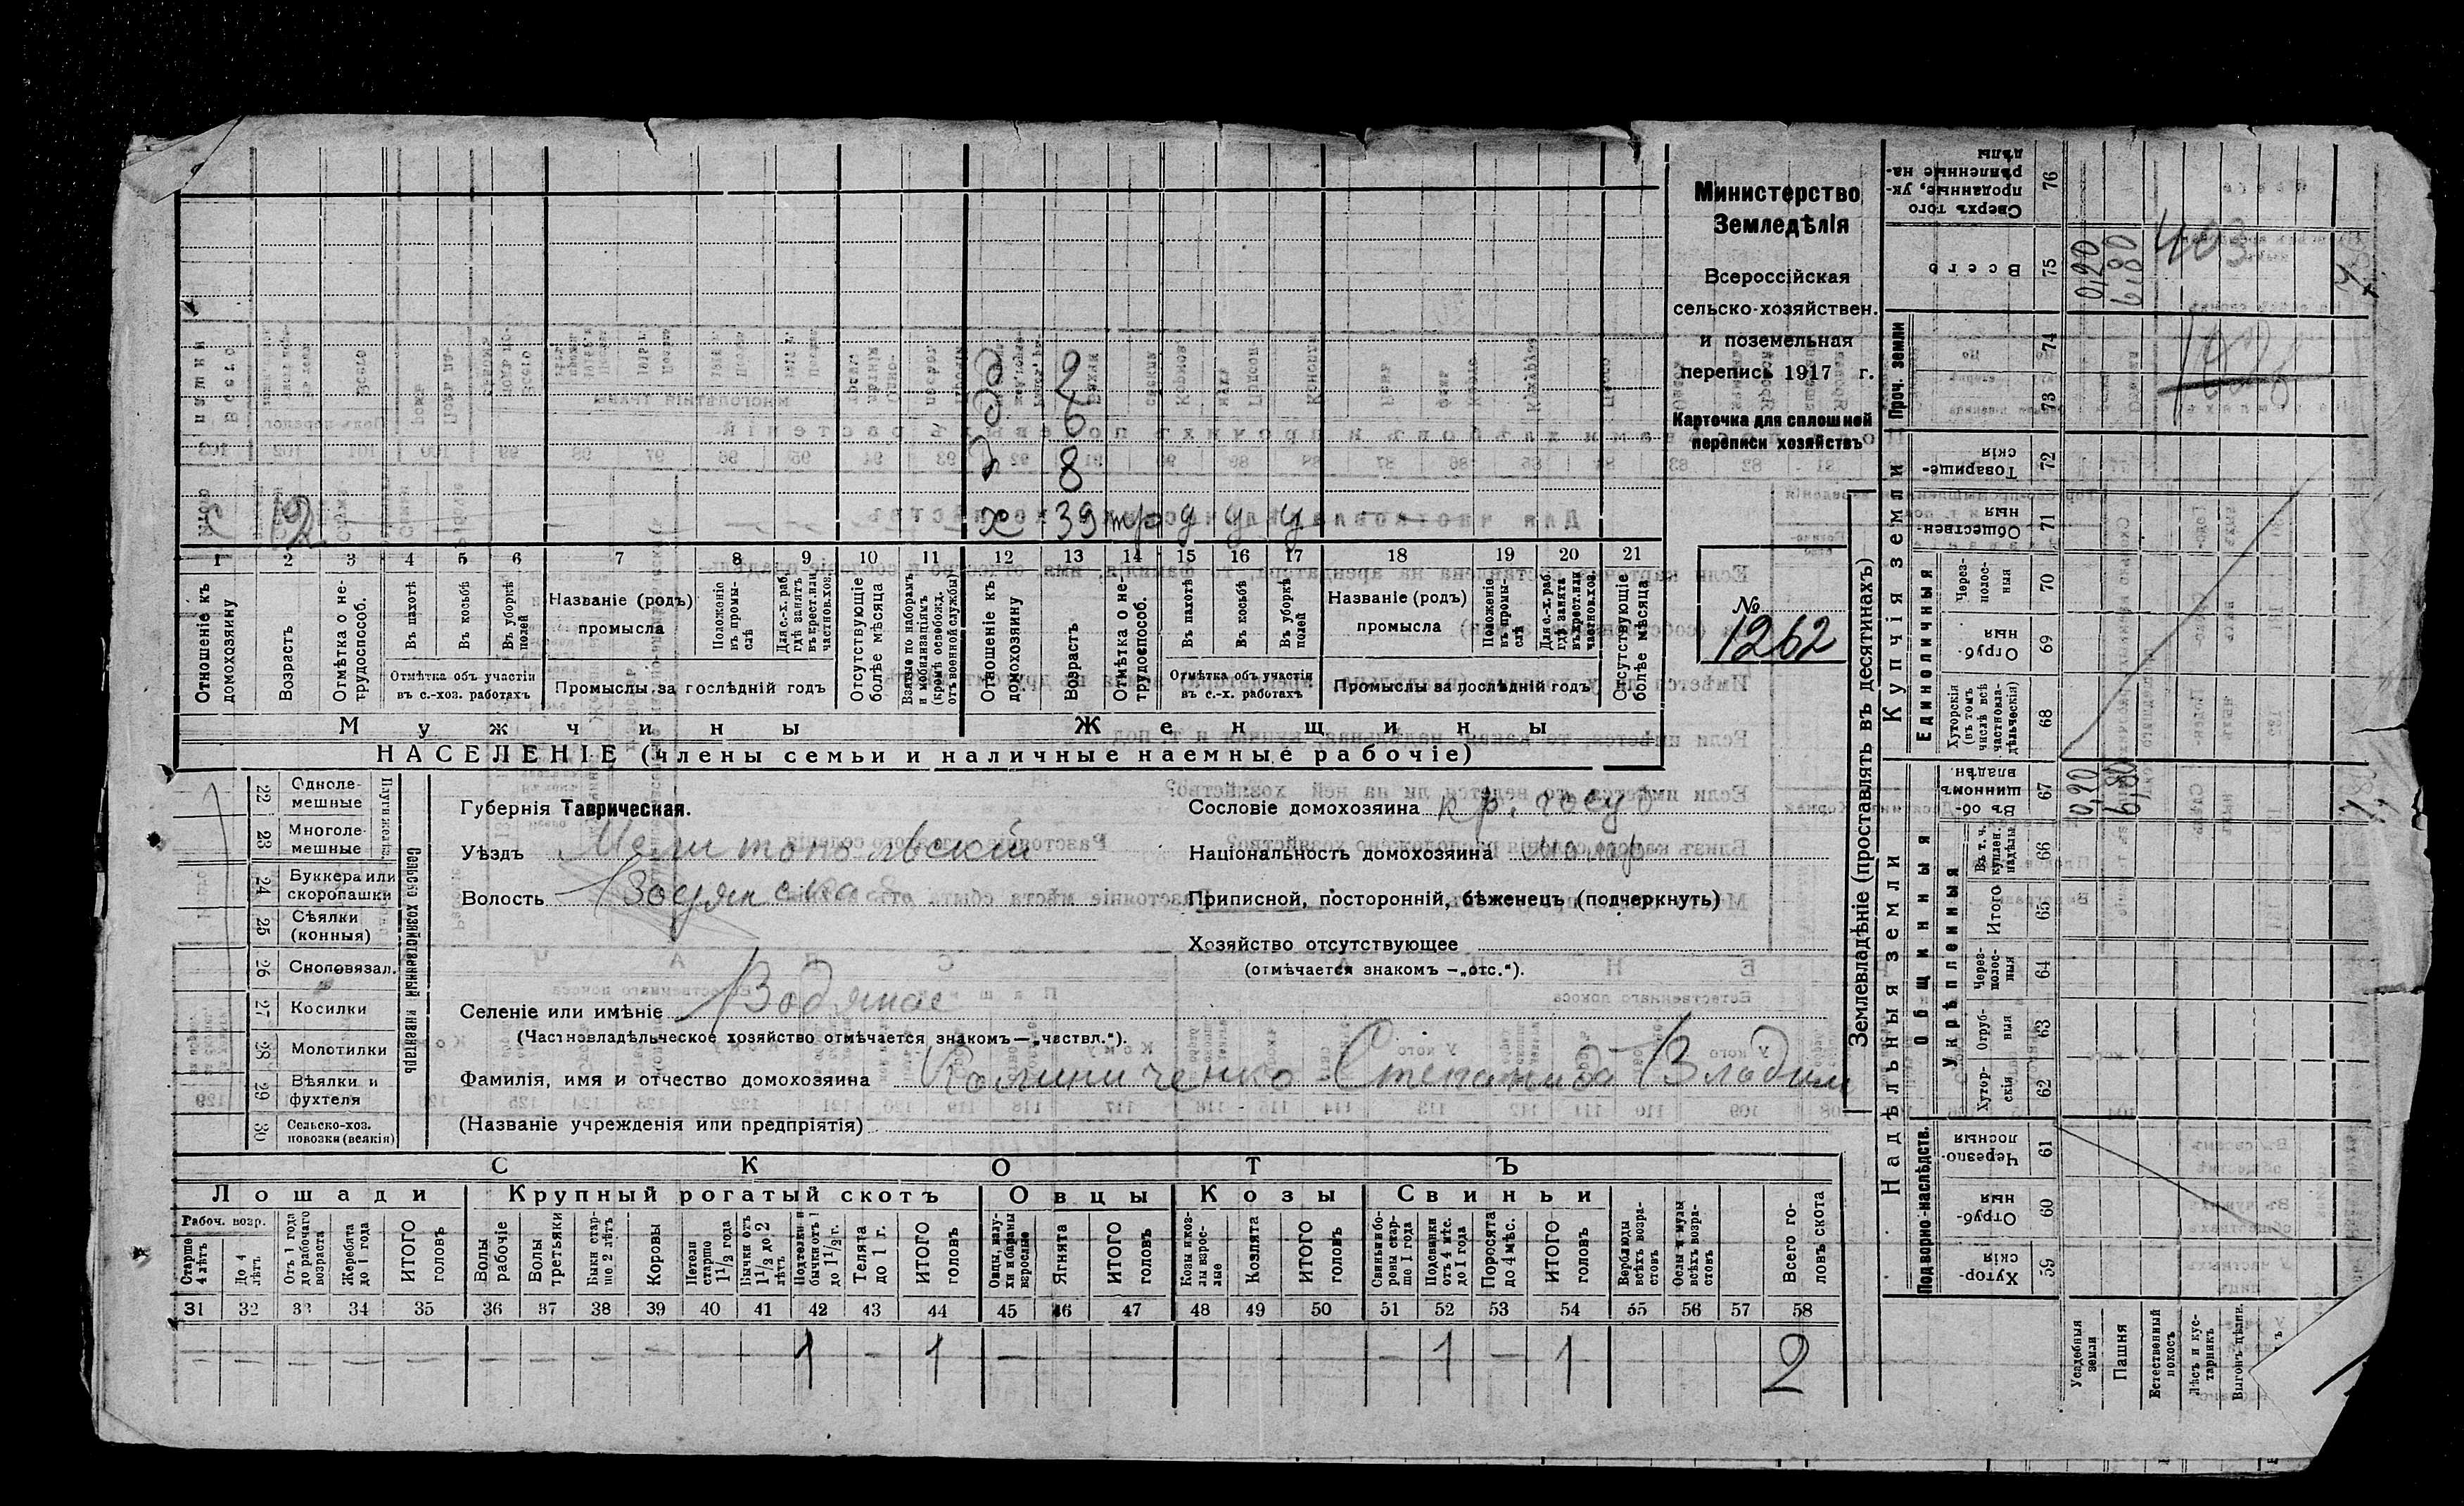 Министерство
Земледѣлія
Всероссійская
сельско-хозяйствен.
и поземельная
перепись 1917 г.
Карточка для сплошной
переписи хозяйствъ
№
1262
д 2
д 6
д 8
х 39 тр у у у
1 2 3 4 5 6 7 8 9 10 11 12 13 14 15 16 17 18 19 20 21
Отношеніе къ домохозяину
Возрастъ
Отмѣтка о нетрудоспособ.
Въ пахотѣ
Въ косьбѣ
Въ уборкѣ полей
Отмѣтка объ участіи въ с.-хоз. работахъ
Названіе (родъ) промысла
Положеніе въ промыслѣ
Для с.-х. раб. гдѣ занятъ въ крест. или частнов. хоз.
Промыслы за послѣдній годъ
Отсутствующіе болѣе мѣсяца
Взятые по наборамъ и мобилизаціямъ (кромѣ освобожд. отъ военной службы)
Отношеніе къ домохозяину
Возрастъ
Отмѣтка о нетрудоспособ.
Въ пахотѣ
Въ косьбѣ
Въ уборкѣ полей
Отмѣтка объ участіи въ с.-х. работахъ
Названіе (родъ) промысла
Положеніе въ промыслѣ
Для с.-х. раб. гдѣ занята въ крест. или частнов. хоз.
Промыслы за послѣдній годъ
Отсутствующіе болѣе мѣсяца
Мужчины Женщины
НАСЕЛЕНІЕ (члены семьи и наличные наемные рабочіе)
22 Однолемешные
23 Многолемешные
Плуги желѣз.
24 Буккера или скоропашки
25 Сѣялки (конныя)
26 Сноповязал.
27 Косилки
28 Молотилки
29 Вѣялки и фухтеля
30 Сельско-хоз. повозки (всякія)
Сельско хозяйственный инвентарь
Губернія Таврическая.
Уѣздъ Мелитопольскій
Волость Водянская
Селеніе или имѣніе Водяное
(Частновладѣльческое хозяйство отмѣчается знакомъ—„частвл.“).
Фамилія, имя и отчество домохозяина Калиниченко Степанида Владим
(Названіе учрежденія или предпріятія)
Сословіе домохозяина кр. госуд
Національность домохозяина малор
Приписной, посторонній, бѣженецъ (подчеркнуть)
Хозяйство отсутствующее
(отмѣчается знакомъ —„отс.“).
СКОТЪ
Лошади Крупный рогатый скотъ Овцы Козы Свиньи
Рабоч. возр.
Старше 4 лѣтъ
До 4 лѣтъ
Отъ 1 года до рабочаго возраста
Жеребята до 1 года
ИТОГО головъ
Волы рабочіе
Волы третьяки
Быки старше 2 лѣтъ
Коровы
Нетели старше 1½ года
Бычки отъ 1½ до 2 лѣтъ
Подтелки и бычки отъ 1 до 1½ г.
Телята до 1 г.
ИТОГО головъ
Овцы, валухи и бараны взрослые
Ягнята
ИТОГО головъ
Козы и козлы взрослые
Козлята
ИТОГО головъ
Свиньи и боровы старше 1 года
Подсвинки отъ 4 мѣс. до 1 года
Поросята до 4 мѣс.
ИТОГО головъ
Верблюды всѣхъ возрастовъ
Ослы и мулы всѣхъ возрастовъ
Всего головъ скота
31 32 33 34 35 36 37 38 39 40 41 42 43 44 45 46 47 48 49 50 51 52 53 54 55 56 57 58
— — — — — — — — — — — 1 — 1 — — 1 — 1 2
Землевладѣніе (проставлять въ десятинахъ)
Купчія земли
Сверхъ того проданные, укрѣпленные надѣлы 76
Всего 75 0,20 6,80
403
Проч. земли 74 73
Товарищескія 72
Общественныя 71
Единоличныя
Черезполосныя 70
Отрубныя 69
Хуторскія (въ томъ числѣ всѣ частновладѣльческія) 68
Надѣльныя земли
Общинныя
Въ общинномъ владѣн. 67 0,20 6,80
Въ т. ч. куплен. надѣлы 66
Укрѣпленныя
Итого 65
Черезполосныя 64
Отрубныя 63
Хуторскія 62
Подворно-наслѣдств.
Черезполосныя 61
Отрубныя 60
Хуторскія 59
Усадебныя земли
Пашня
Естественный покосъ
Лѣсъ и кустарникъ
Выгонъ, цѣлин.